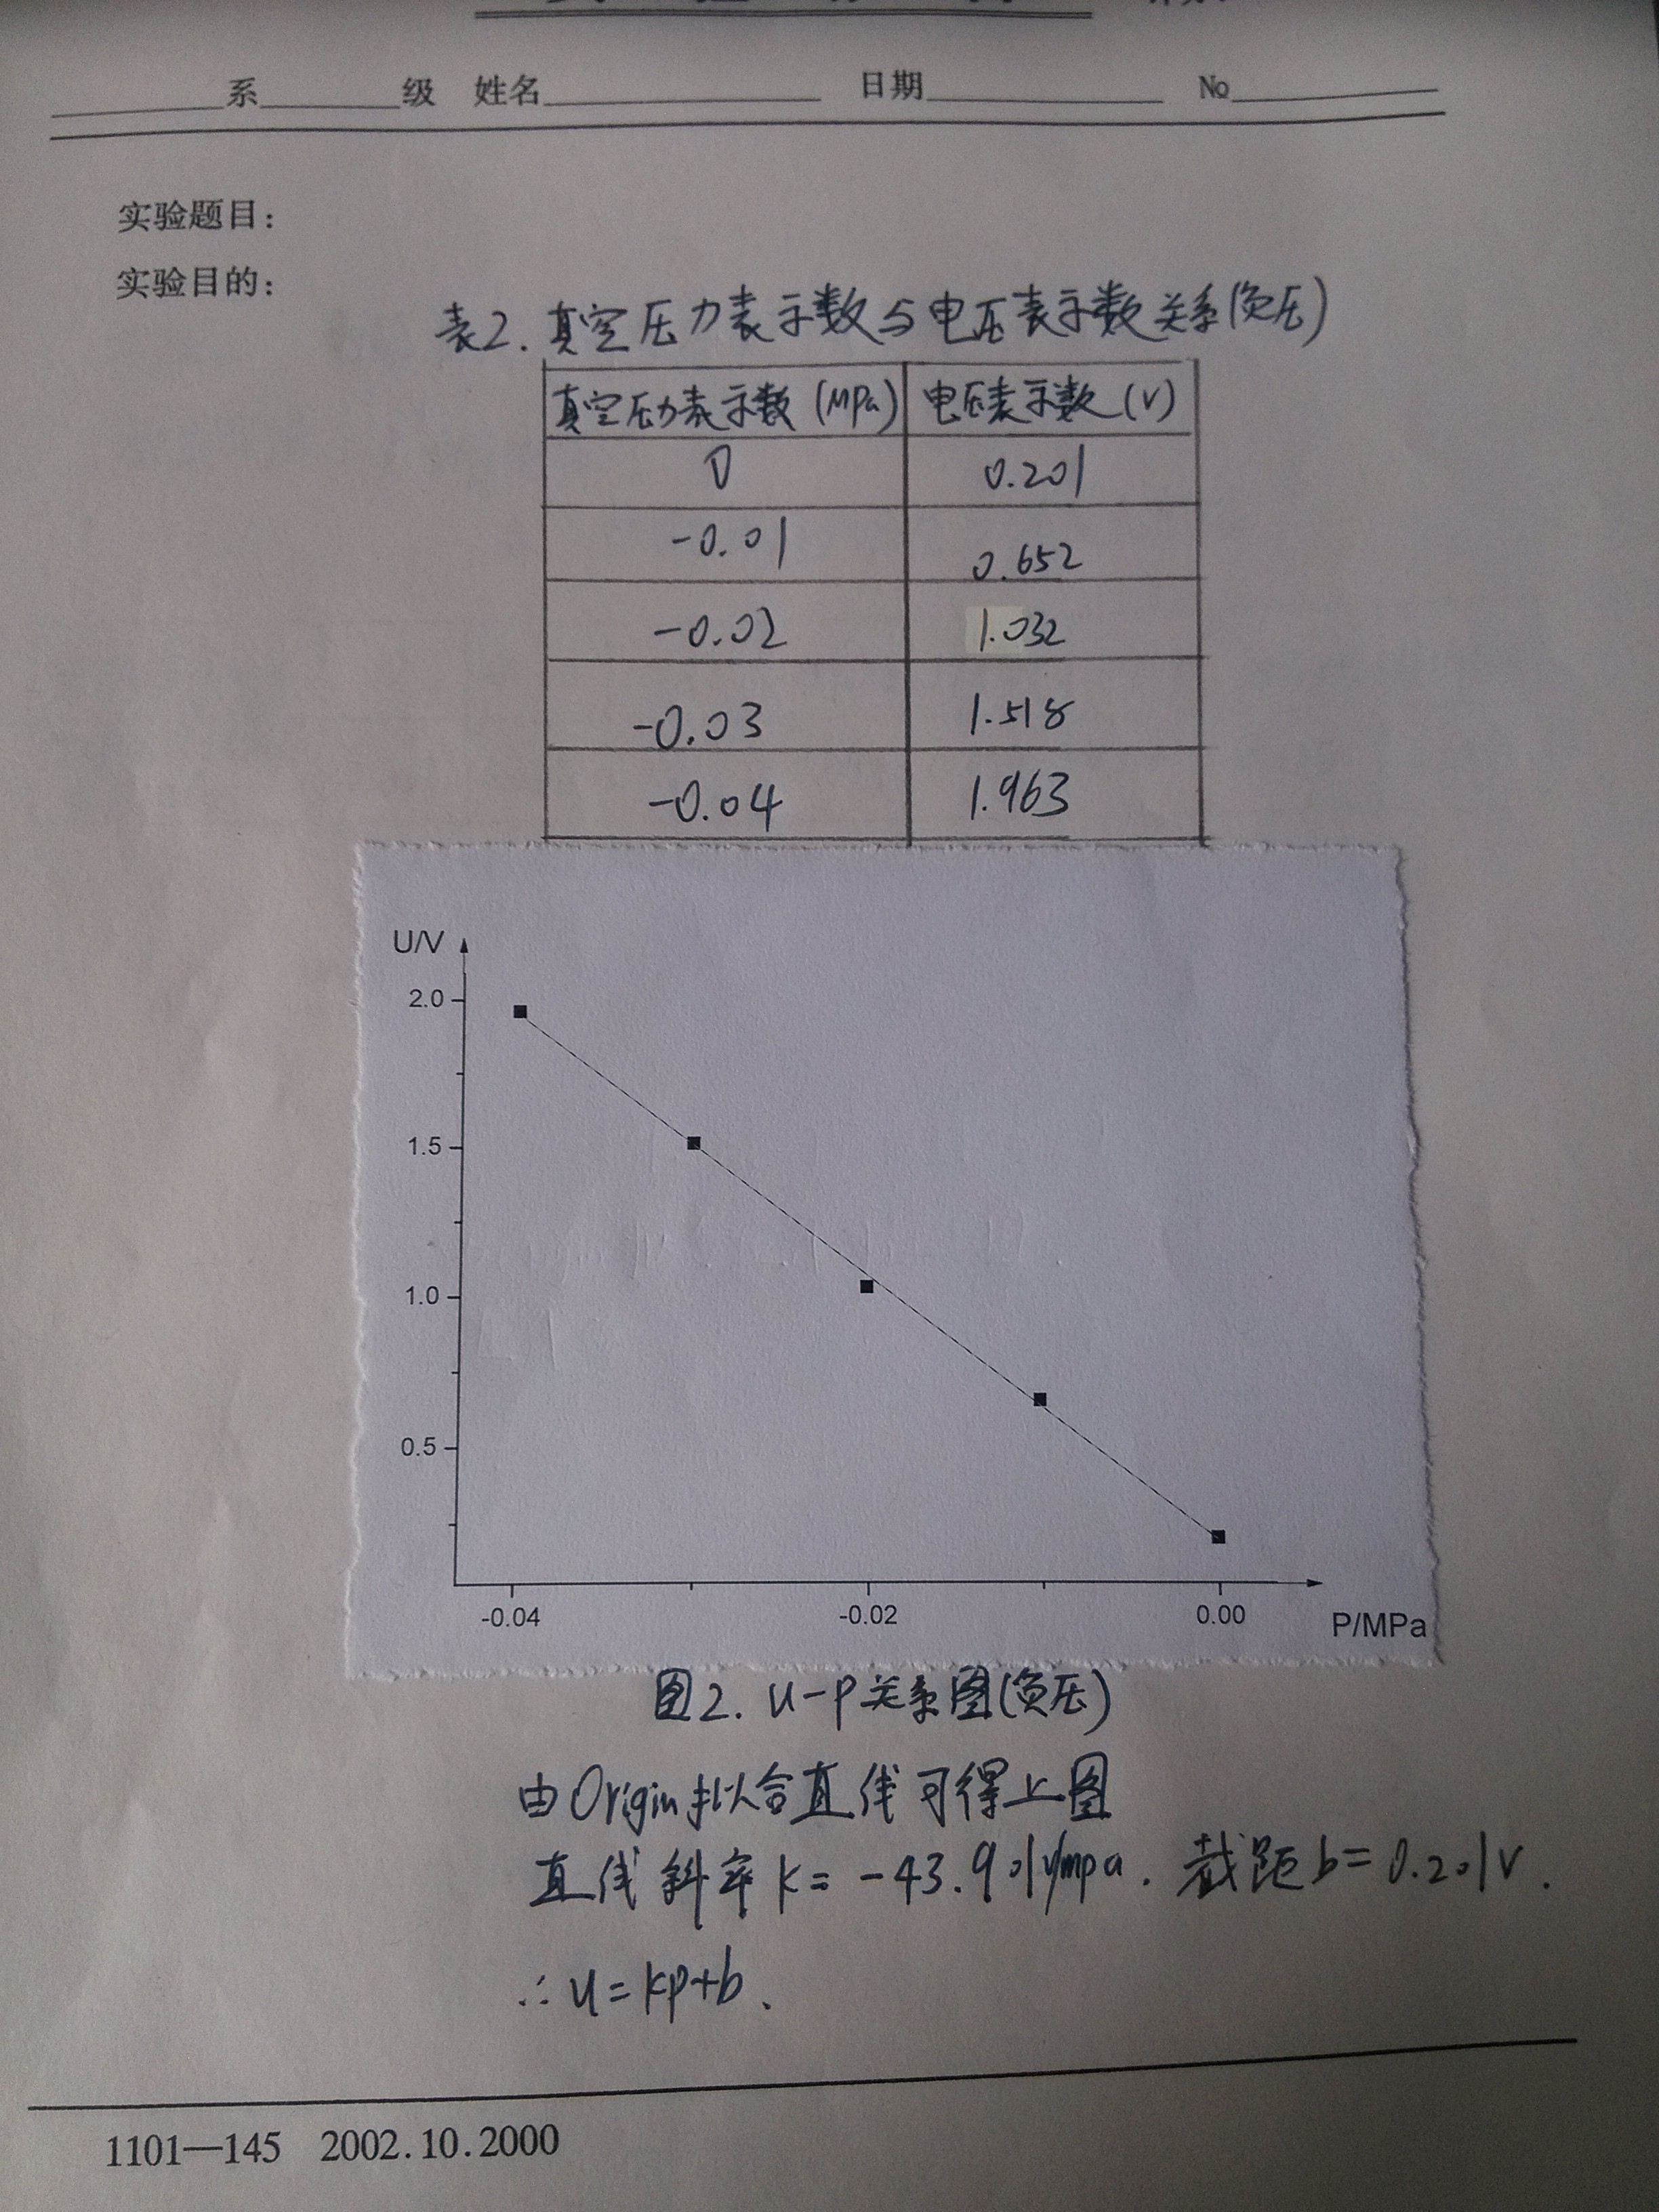 系 级 姓名 日期 №
实验题目:
实验目的:
表2. 真空压力表示数与电压表示数关系(负压)
真空压力表示数 (MPa) 电压表示数 (V)
0 0.201
-0.01 0.652
-0.02 1.032
-0.03 1.518
-0.04 1.963
U/V
2.0
1.5
1.0
0.5
-0.04 -0.02 0.00 P/MPa
图2. U-P关系图(负压)
由Origin拟合直线可得上图
直线斜率 k= -43.901V/mpa. 截距 b= 0.201V.
∴ U= kp+b.
1101—145 2002.10.2000